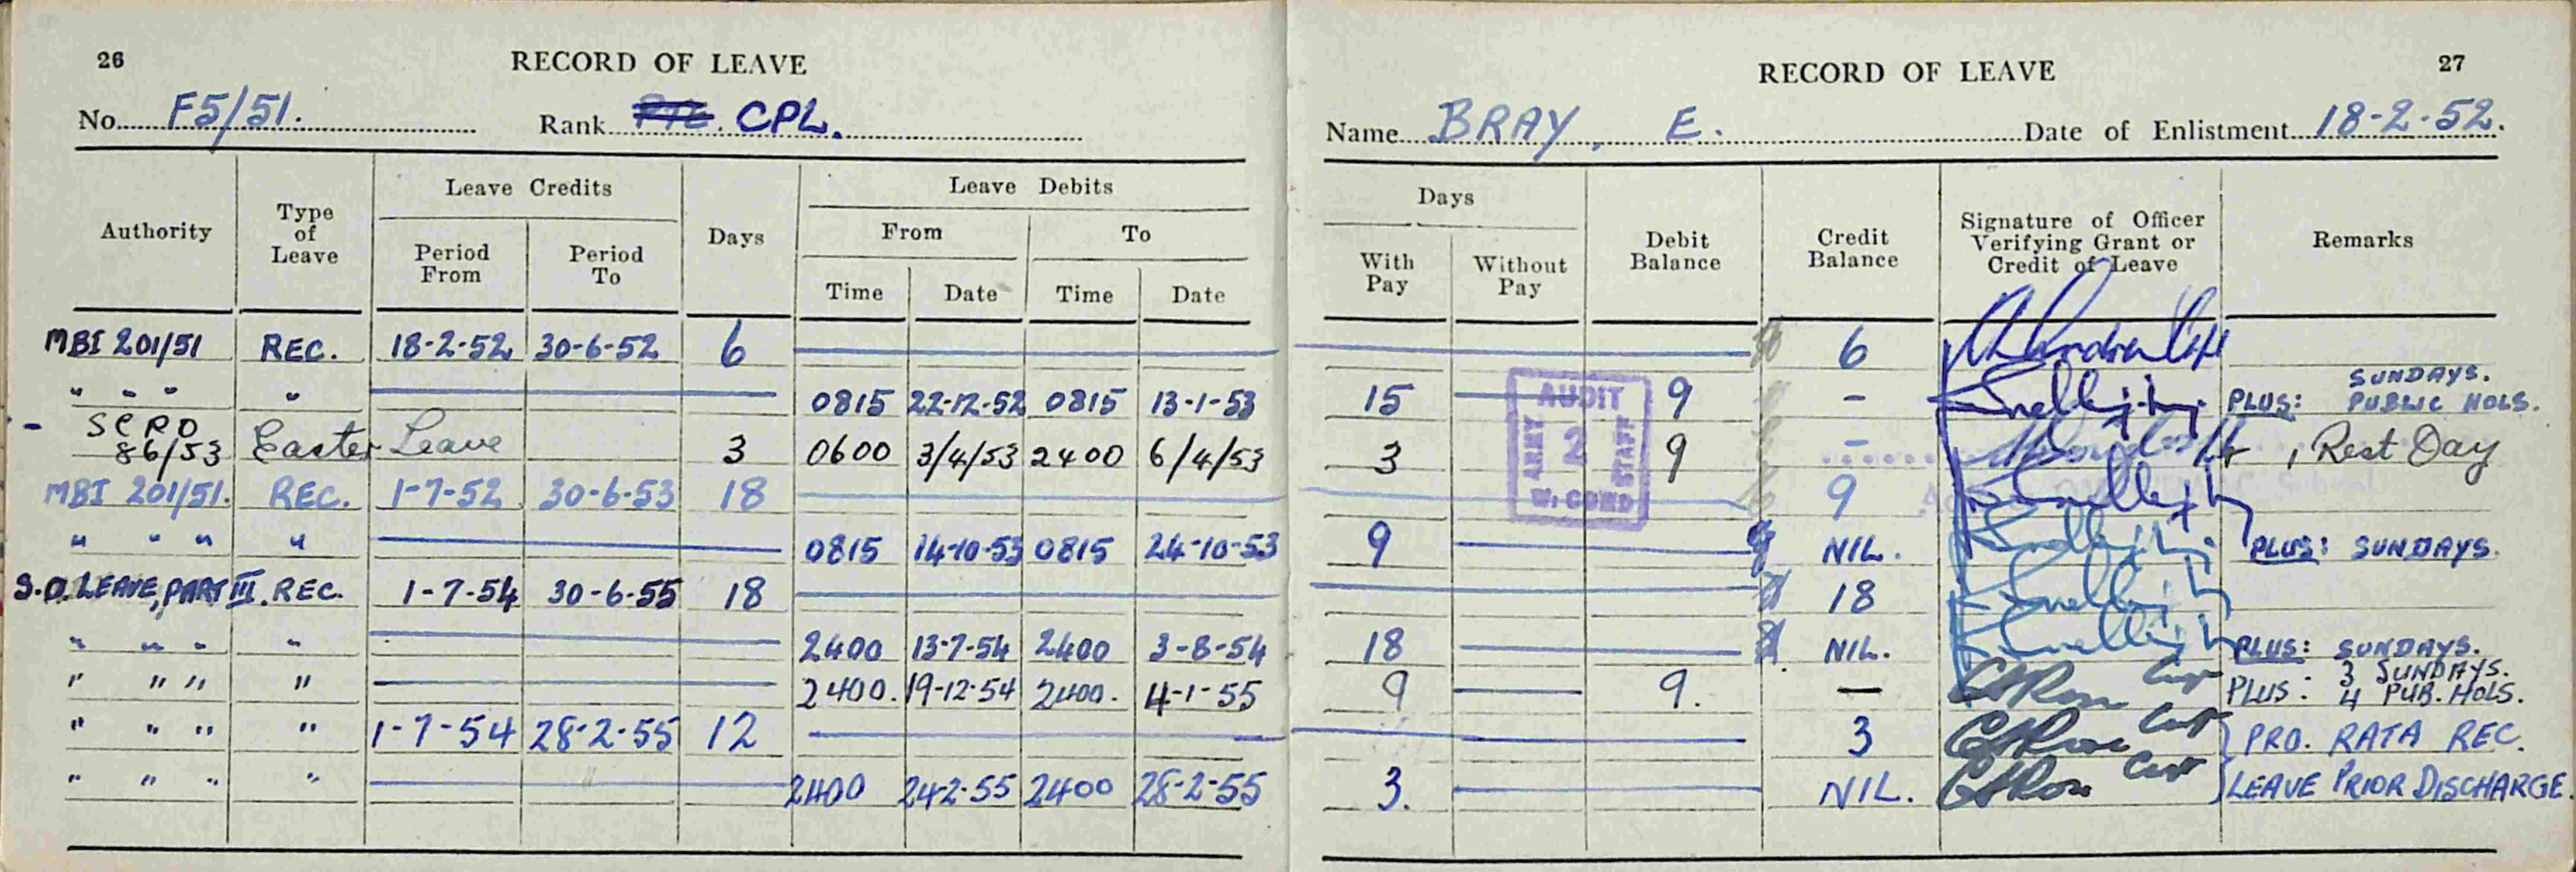 26
RECORD OF LEAVE
No. F5/51. Rank PTE. CPL.
Authority
Type of Leave
Leave Credits
Period From
Period To
Days
Leave Debits
From
To
Time Date Time Date
MBI 201/51 REC. 18-2-52 30-6-52 6
" " " " 0815 22-12-52 0815 13-1-53
SCRO
86/53 Easter Leave 3 0600 3/4/53 2400 6/4/53
MBI 201/51. REC. 1-7-52 30-6-53 18
" " " " 0815 14-10-53 0815 24-10-53
S.O. LEAVE, PART III. REC. 1-7-54 30-6-55 18
" " " " 2400 13-7-54 2400 3-8-54
" " " " 2400. 19-12-54 2400. 4-1-55
" " " " 1-7-54 28-2-55 12
" " " " 2400 24-2-55 2400 28-2-55
27
RECORD OF LEAVE
Name BRAY, E. Date of Enlistment 18-2-52.
Days
With Pay
Without Pay
Debit Balance
Credit Balance
Signature of Officer
Verifying Grant or
Credit of Leave
Remarks
6
SUNDAYS.
15 9 - PLUS: PUBLIC HOLS.
3 9 - , Rest Day
9
9 NIL. PLUS: SUNDAYS.
18
18 NIL. PLUS: SUNDAYS.
3 SUNDAYS.
9 9. — PLUS: 4 PUB. HOLS.
3 PRO. RATA REC.
3. NIL. LEAVE PRIOR DISCHARGE.
AUDIT
ARMY 2 STAFF
W. COMD